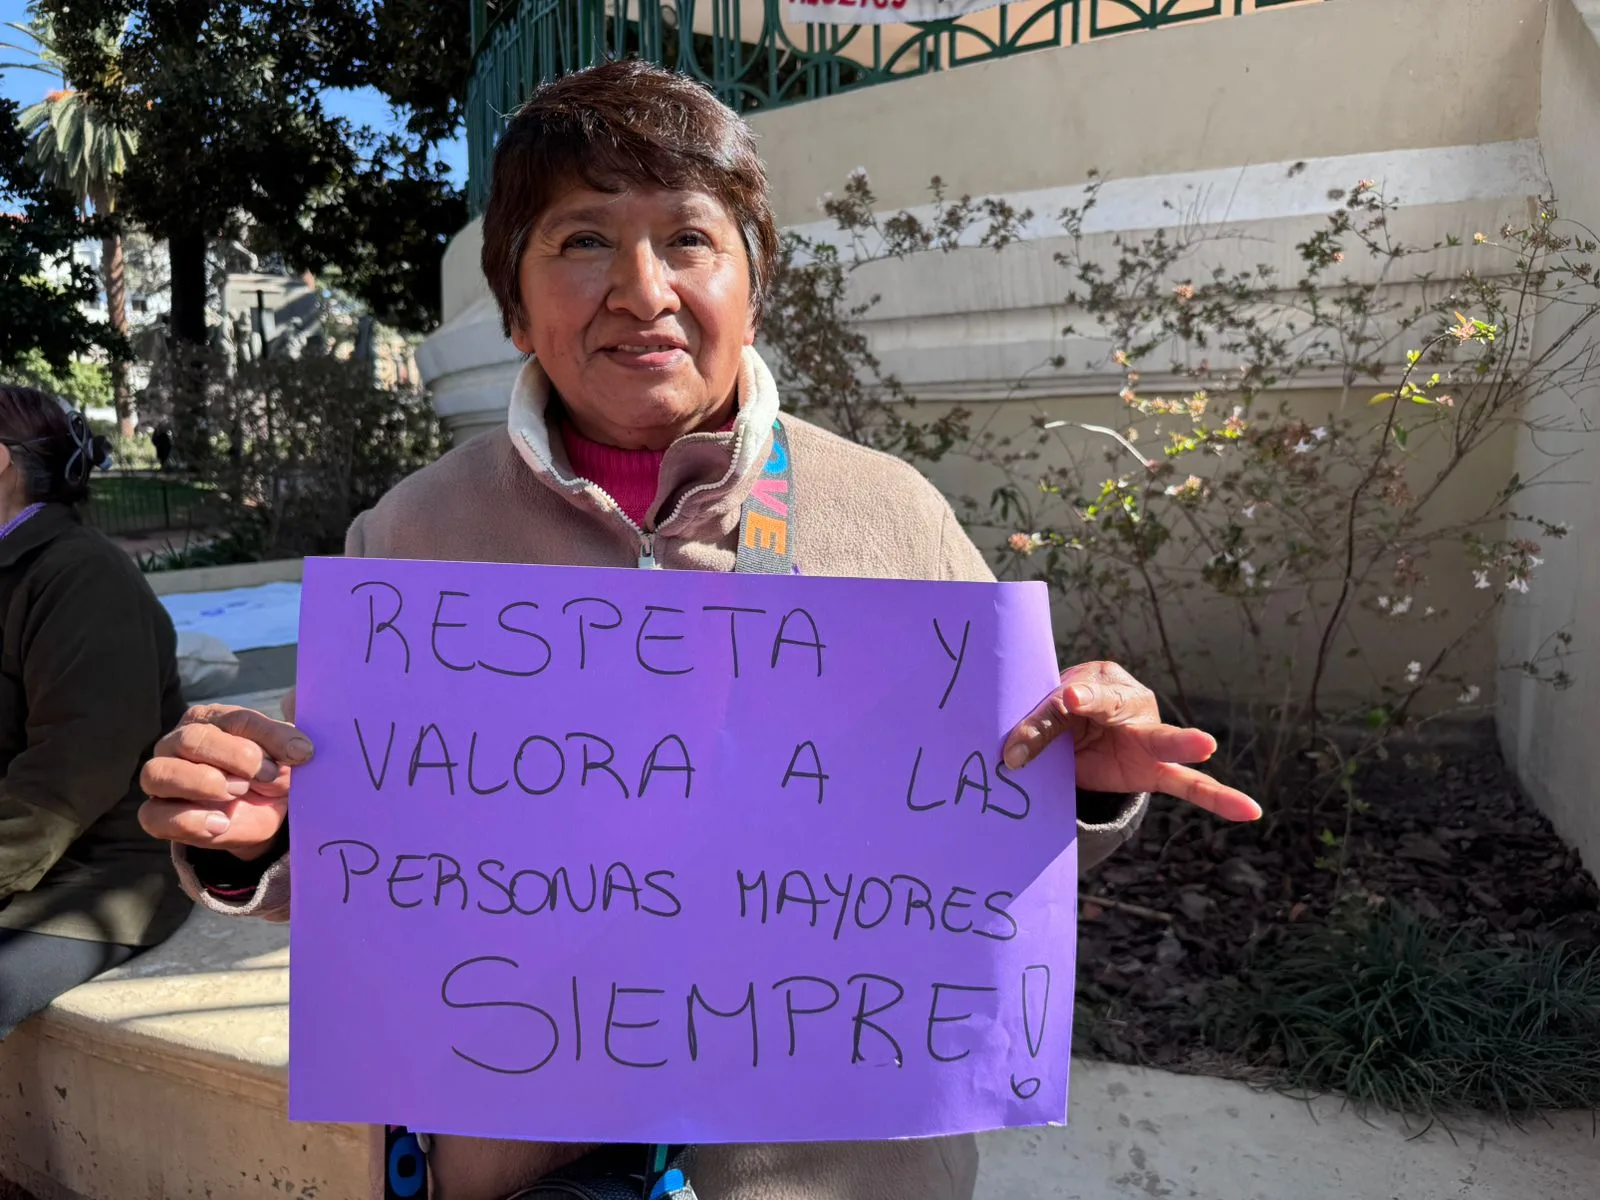 OVE
RESPETA Y
VALORA A LAS
PERSONAS MAYORES
SIEMPRE!